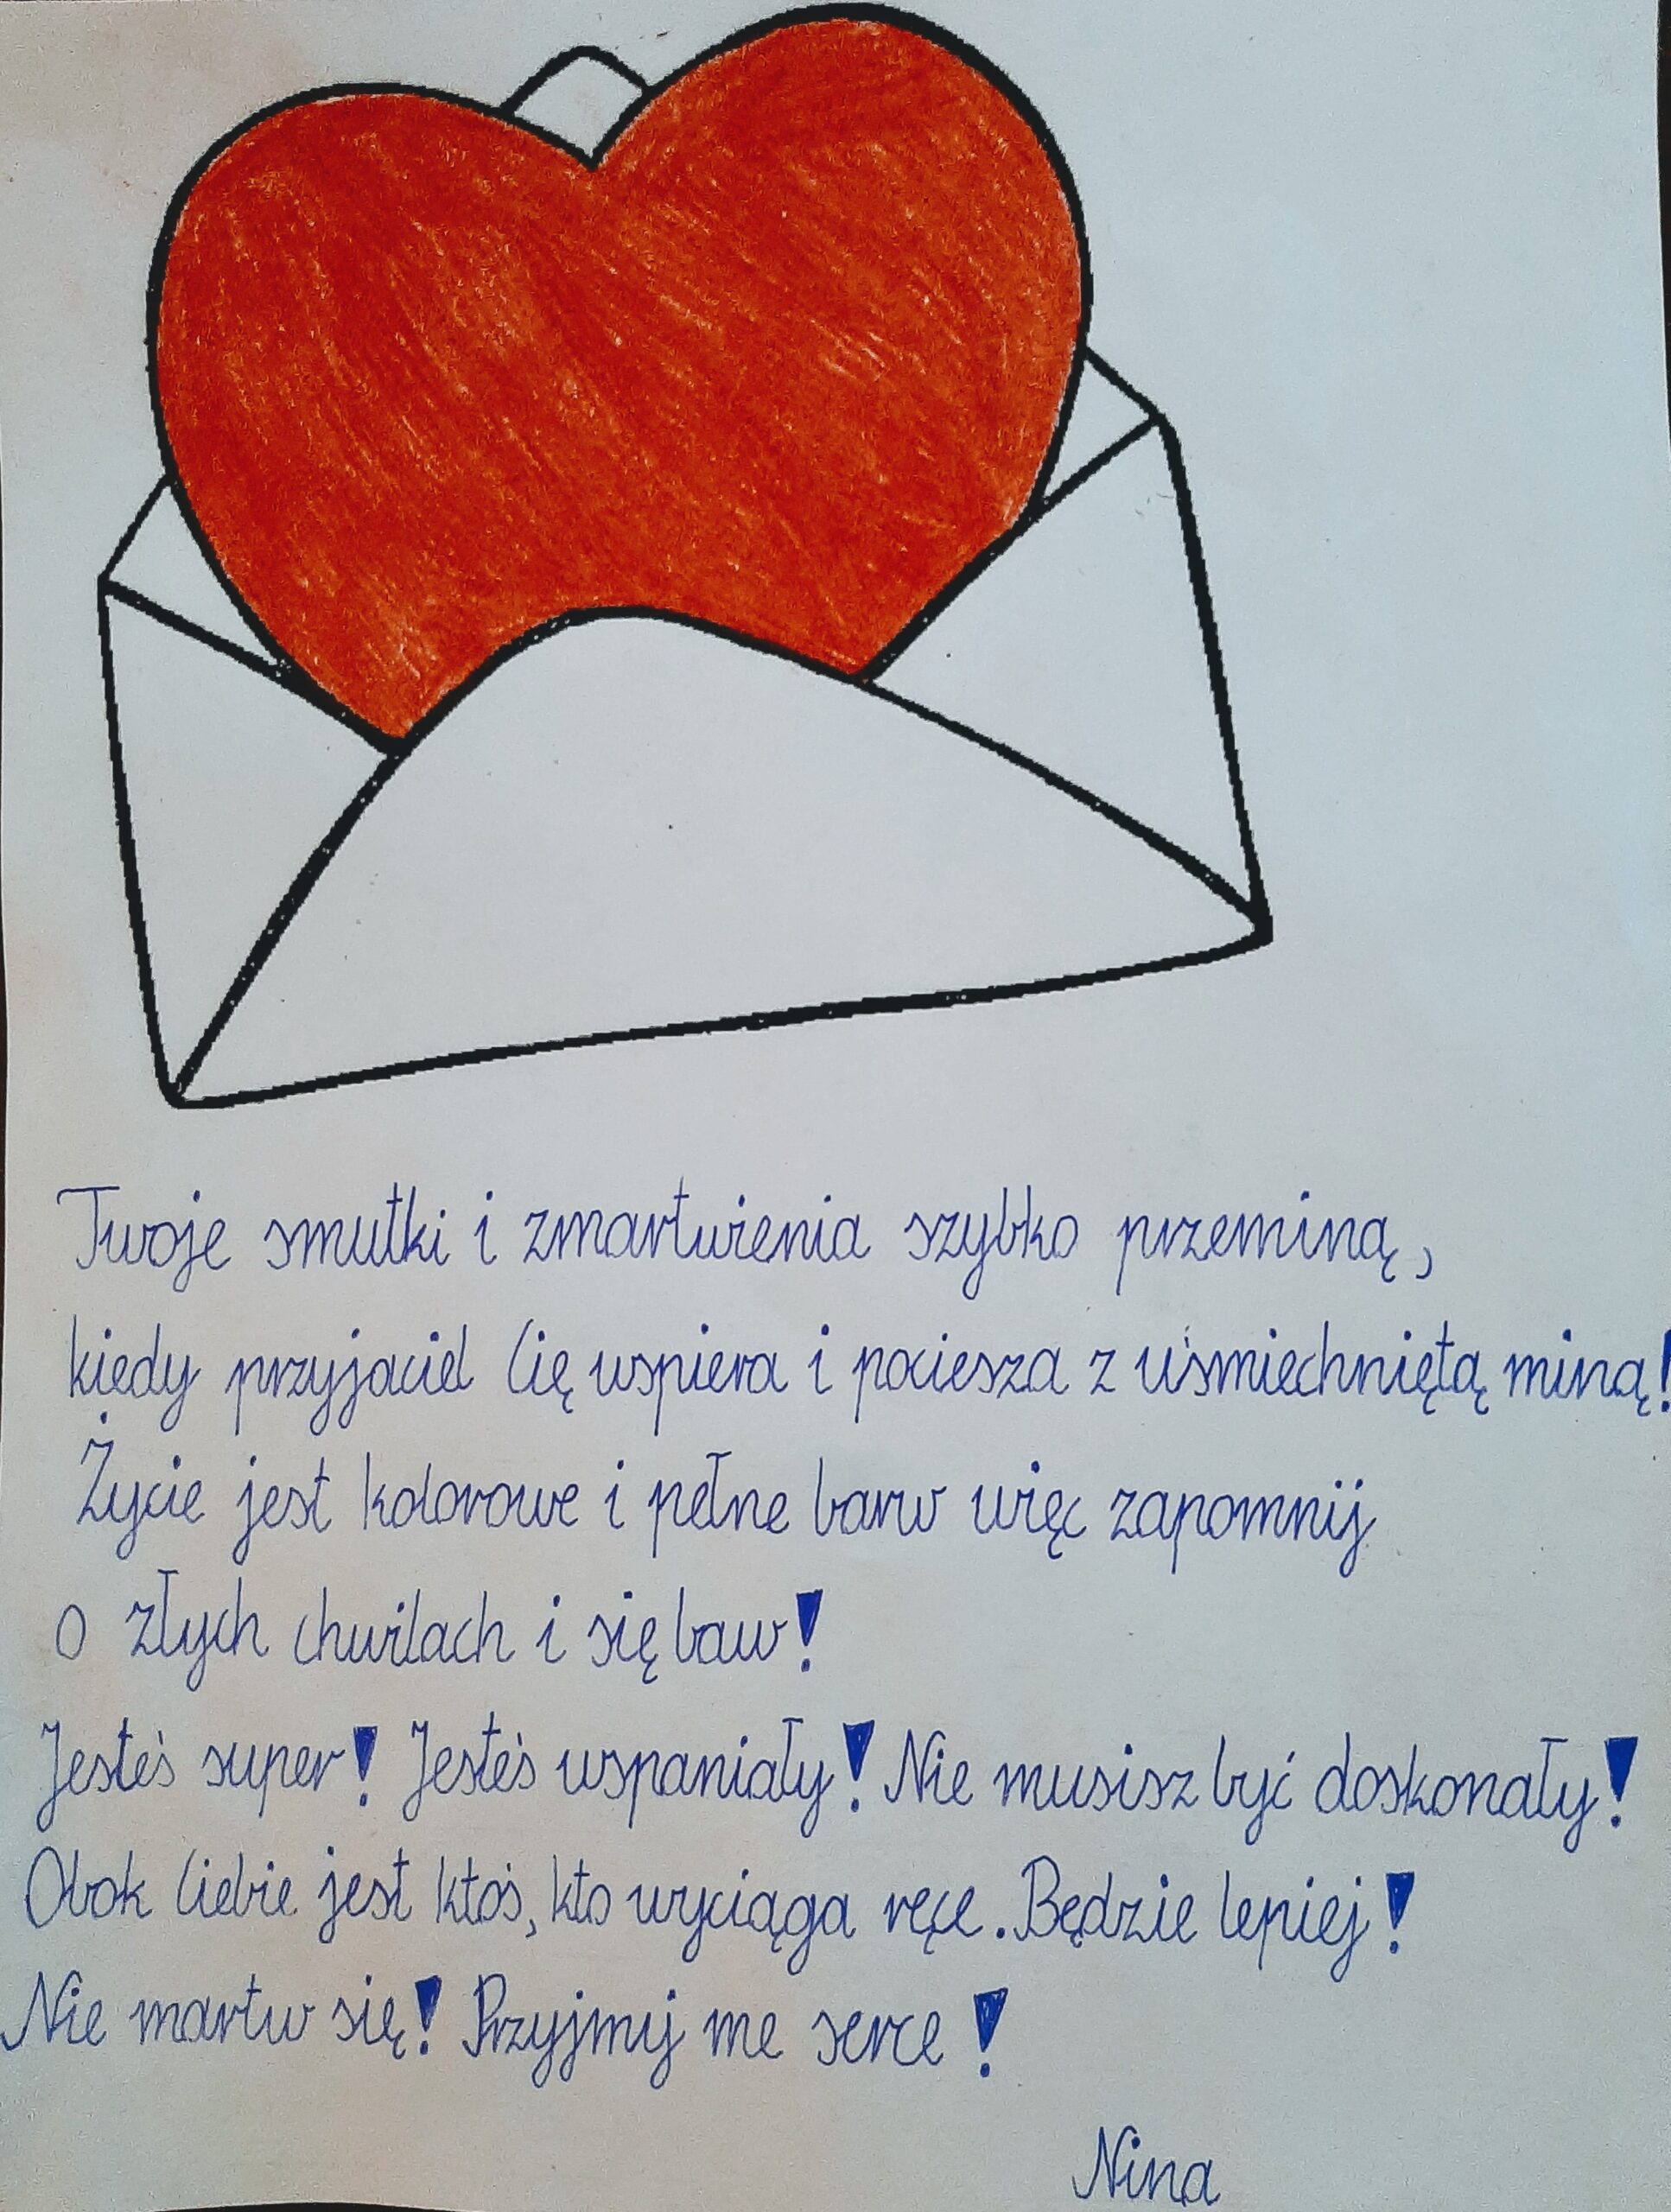 Twoje smutki i zmartwienia szybko przeminą,
kiedy przyjaciel Cię wspiera i pociesza z uśmiechniętą miną!
Życie jest kolorowe i pełne barw więc zapomnij
o złych chwilach i się baw!
Jesteś super! Jesteś wspaniały! Nie musisz być doskonały!
Obok Ciebie jest ktoś, kto wyciąga ręce. Będzie lepiej!
Nie martw się! Przyjmij me serce!
Nina